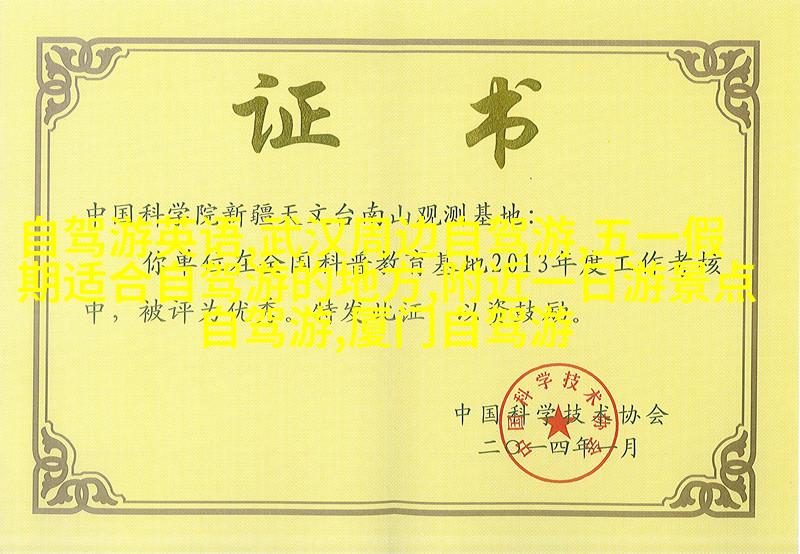 证 书
中国科学院新疆天文台南山观测基地：
自驾游英语,武汉周边自驾游,五一假
你单位在全国科普教育基地2013年度工作考核
期适合自驾游的地方,附近一日游景点
中，被评为优秀。特发此证，以资鼓励。
自驾游,厦门自驾游
中国科学技术协会
二〇一四年一月
中国科学技术协会